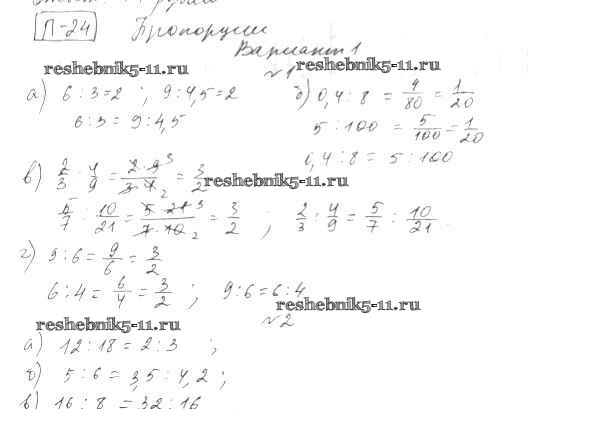 П-24 Пропорции
Вариант 1
reshebnik5-11.ru
№1 reshebnik5-11.ru
а) 6 : 3 = 2 ; 9 : 4,5 = 2
6 : 3 = 9 : 4,5
б) 0,4 : 8 = 4/80 = 1/20
5 : 100 = 5/100 = 1/20
0,4 : 8 = 5 : 100
в) 2/3 : 4/9 = 2·9 3/3·4 2 = 3/2 reshebnik5-11.ru
5/7 : 10/21 = 5·21 3/7·10 2 = 3/2 ; 2/3 : 4/9 = 5/7 : 10/21
г) 9 : 6 = 9/6 = 3/2
6 : 4 = 6/4 = 3/2 ; 9 : 6 = 6 : 4
reshebnik5-11.ru
reshebnik5-11.ru №2
а) 12 : 18 = 2 : 3 ;
б) 5 : 6 = 3,5 : 4,2 ;
в) 16 : 8 = 32 : 16